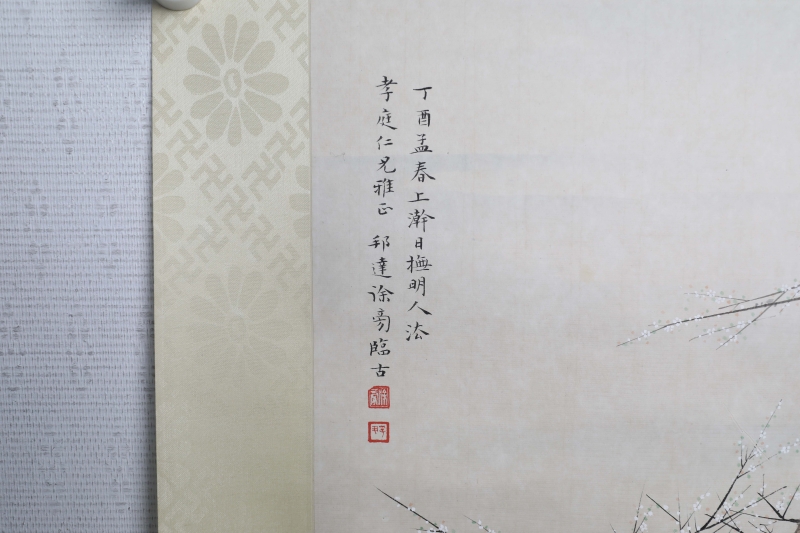 丁酉孟春上澣日撫明人法
孝庭仁兄雅正 邦達徐㐮臨古